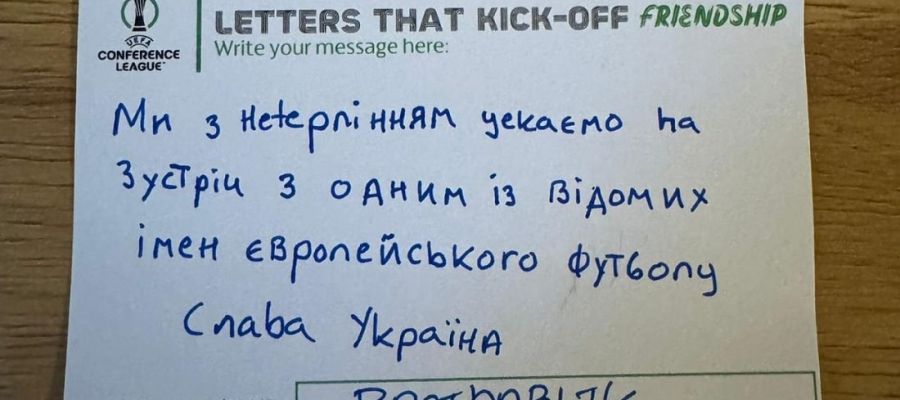 UEFA
CONFERENCE
LEAGUE
LETTERS THAT KICK-OFF FRIENDSHIP
Write your message here:
Ми з нетерпінням чекаємо на
Зустріч з одним із відомих
імен європейського футболу
Слава Україна